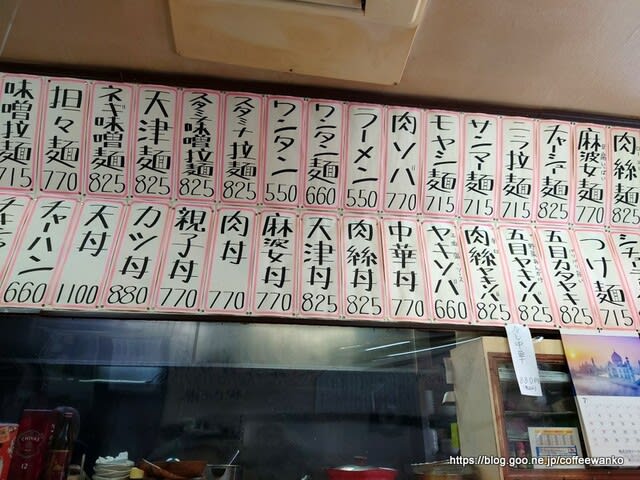 味噌拉麺
715
担々麺
770
ネギ味噌麺
825
天津麺
825
スタミナ味噌拉麺
825
スタミナ拉麺
825
ワンタン
550
ワンタン麺
660
ラーメン
550
肉ソバ
770
モヤシ麺
715
サンマー麺
715
ニラ拉麺
715
チャーシュー麺
825
麻婆麺
770
肉絲麺
825
チャーハン
660
天丼
1100
カツ丼
880
親子丼
770
肉丼
770
麻婆丼
770
天津丼
825
肉絲丼
825
中華丼
770
ヤキソバ
660
肉絲ヤキソバ
825
五目ヤキソバ
825
五目カタヤキ
825
つけ麺
715
880円
CHIVAS
12
7
https://blog.goo.ne.jp/coffeewanko